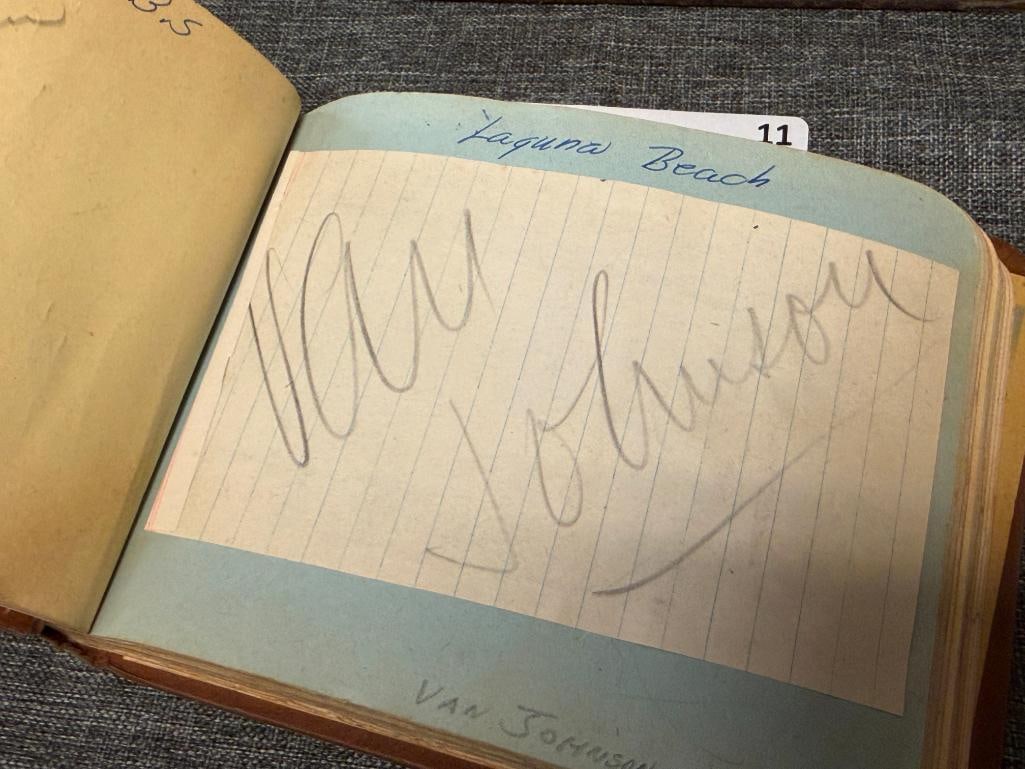 3.5
11
Laguna Beach
Van
Johnson
VAN JOHNSON